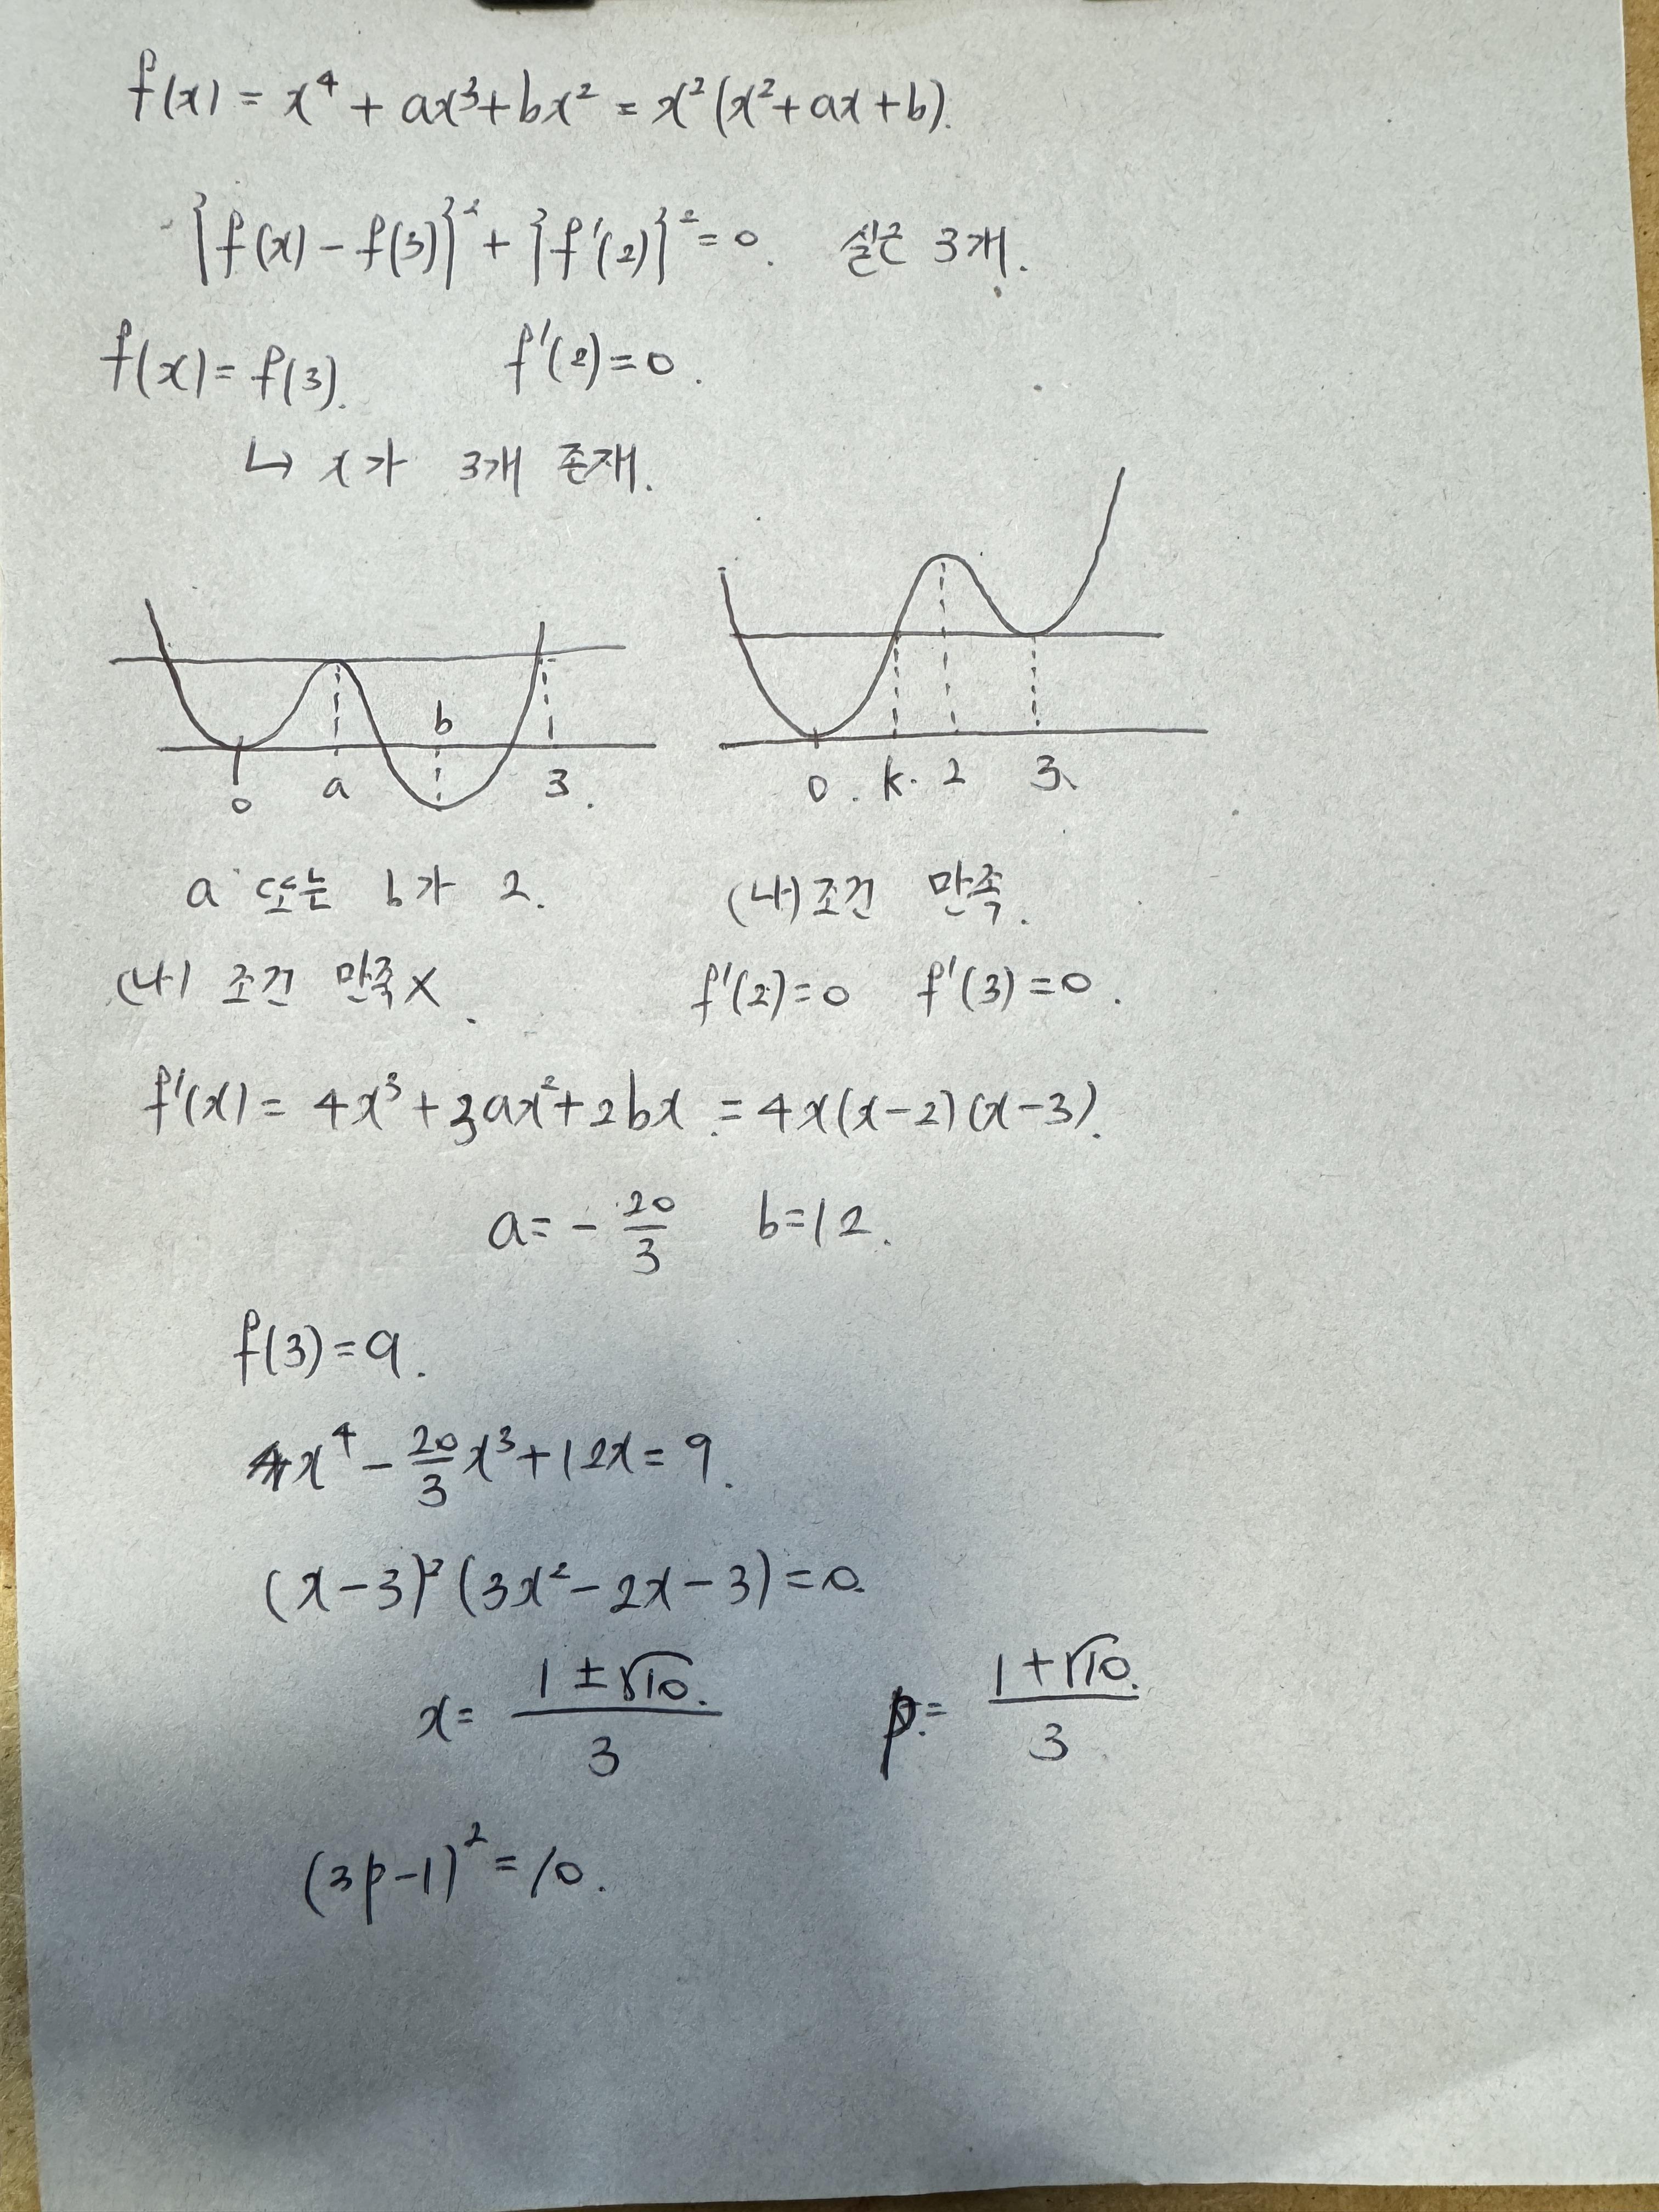 f(x) = x⁴ + ax³ + bx² = x²(x² + ax + b).
{f(x) - f(3)}² + {f'(2)}² = 0. 실근 3개.
f(x) = f(3). f'(2) = 0.
↳ x가 3개 존재.
b
0 a 3.
0. k. 2 3
a 또는 b가 2. (나) 조건 만족.
(나) 조건 만족 X. f'(2) = 0 f'(3) = 0.
f'(x) = 4x³ + 3ax² + 2bx = 4x(x-2)(x-3).
a = - 20/3 b = 12.
f(3) = 9.
x⁴ - 20/3 x³ + 12x = 9.
(x-3)² (3x² - 2x - 3) = 0.
x = (1 ± √10)/3 p = (1 + √10)/3
(3p - 1)² = 10.